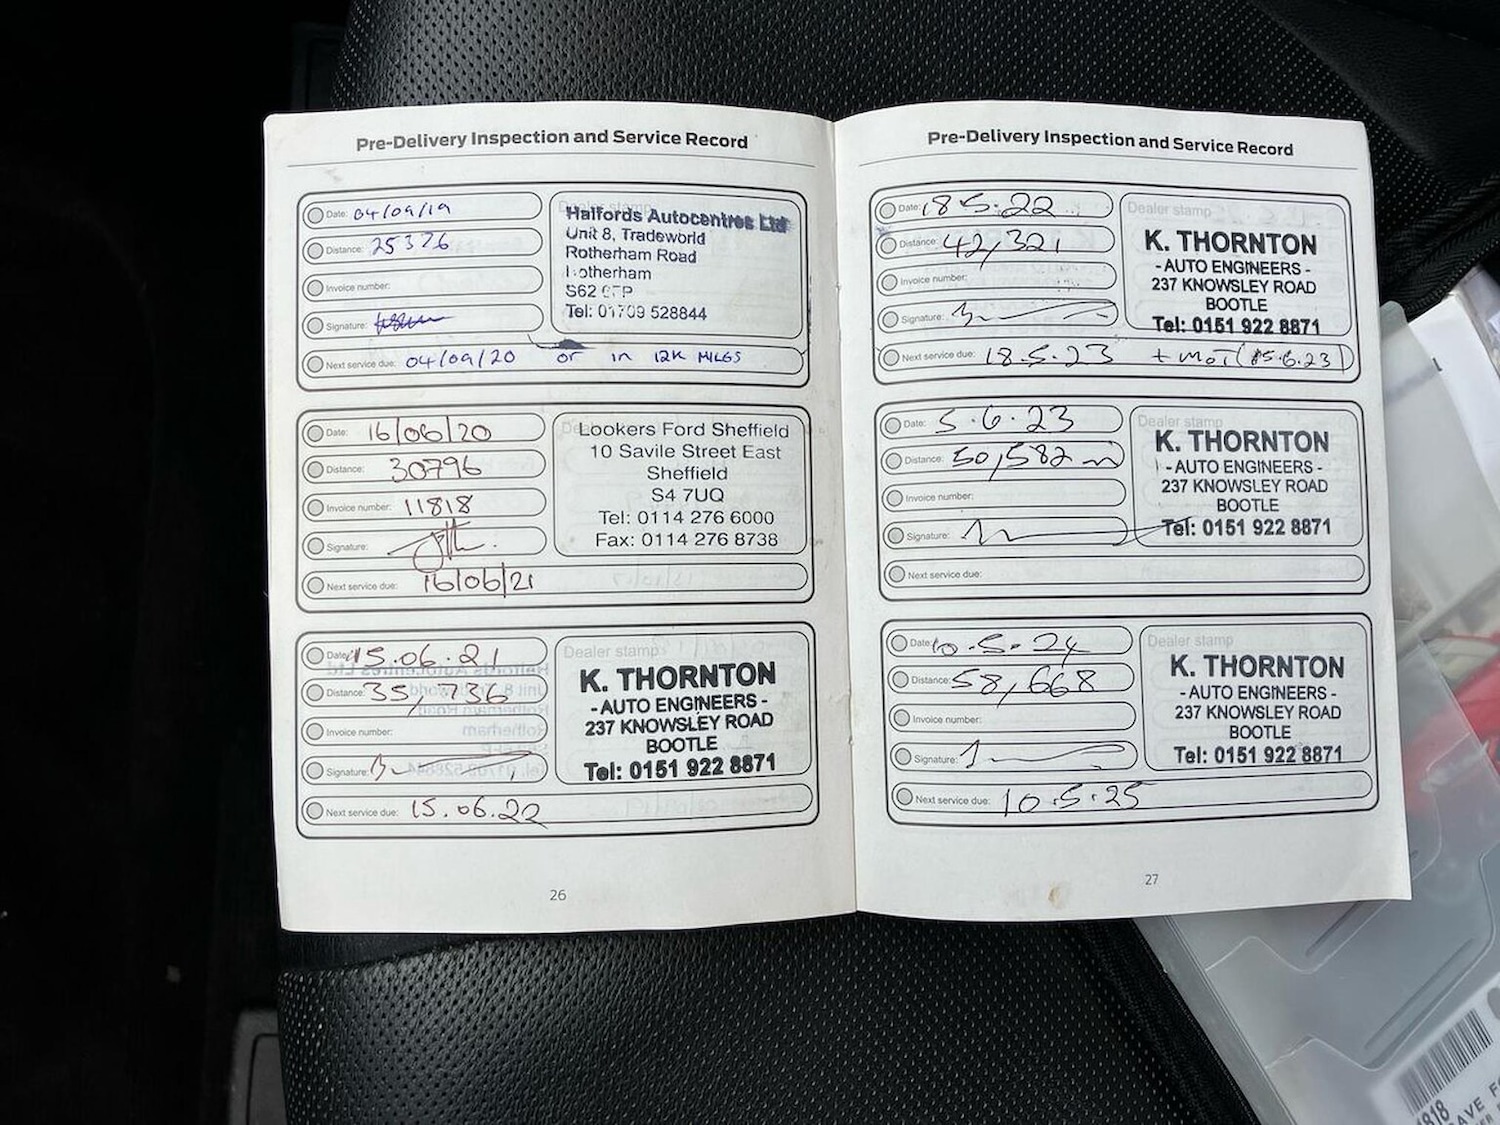 Pre-Delivery Inspection and Service Record
Date: 04/09/19
Distance: 25376
Invoice number:
Signature:
Next service due: 04/09/20 or in 12K MILES
Dealer stamp
Halfords Autocentres Ltd
Unit 8, Tradeworld
Rotherham Road
Rotherham
S62
Tel: 01709 528844
Date: 16/06/20
Distance: 30796
Invoice number: 11818
Signature:
Next service due: 16/06/21
Lookers Ford Sheffield
10 Savile Street East
Sheffield
S4 7UQ
Tel: 0114 276 6000
Fax: 0114 276 8738
Date: 15.06.21
Distance: 35,736
Invoice number:
Signature:
Next service due: 15.06.22
Dealer stamp
K. THORNTON
- AUTO ENGINEERS -
237 KNOWSLEY ROAD
BOOTLE
Tel: 0151 922 8871
26
Pre-Delivery Inspection and Service Record
Date: 18.5.22
Distance: 42,321
Invoice number:
Signature:
Next service due: 18.5.23 + MOT (15.6.23)
Dealer stamp
K. THORNTON
- AUTO ENGINEERS -
237 KNOWSLEY ROAD
BOOTLE
Tel: 0151 922 8871
Date: 5.6.23
Distance: 50,582 m
Invoice number:
Signature:
Next service due:
Dealer stamp
K. THORNTON
- AUTO ENGINEERS -
237 KNOWSLEY ROAD
BOOTLE
Tel: 0151 922 8871
Date: 10.5.24
Distance: 58,668
Invoice number:
Signature:
Next service due: 10.5.25
Dealer stamp
K. THORNTON
- AUTO ENGINEERS -
237 KNOWSLEY ROAD
BOOTLE
Tel: 0151 922 8871
27